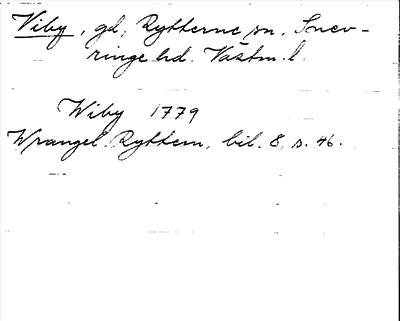 Viby, gd, Rytterne sn. Snev-
ringe hd. Västm. l.
Wiby 1779
Wrangel Ryttern, bil. 8, s. 46.